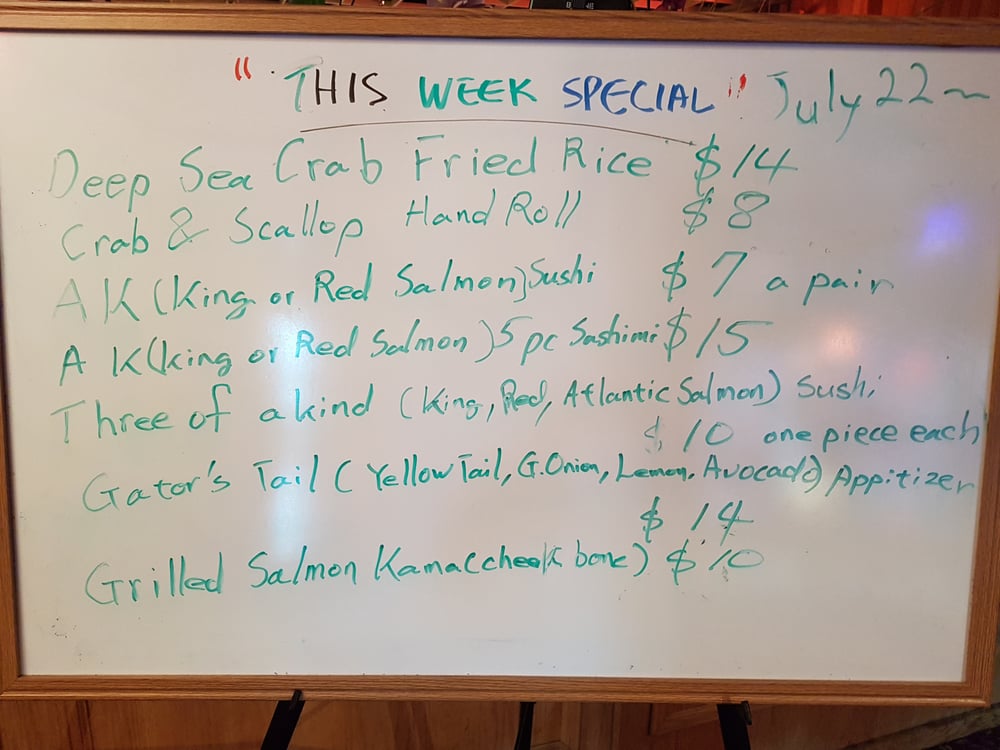 "THIS WEEK SPECIAL" July 22~
Deep Sea Crab Fried Rice $14
Crab & Scallop Hand Roll $8
AK (King or Red Salmon) Sushi $7 a pair
AK (king or Red Salmon) 5 pc Sashimi $15
Three of a kind (King, Red, Atlantic Salmon) Sushi
$10 one piece each
Gator's Tail ( Yellow Tail, G.Onion, Lemon, Avocado) Appitizer
$14
Grilled Salmon Kama (cheek bone) $10